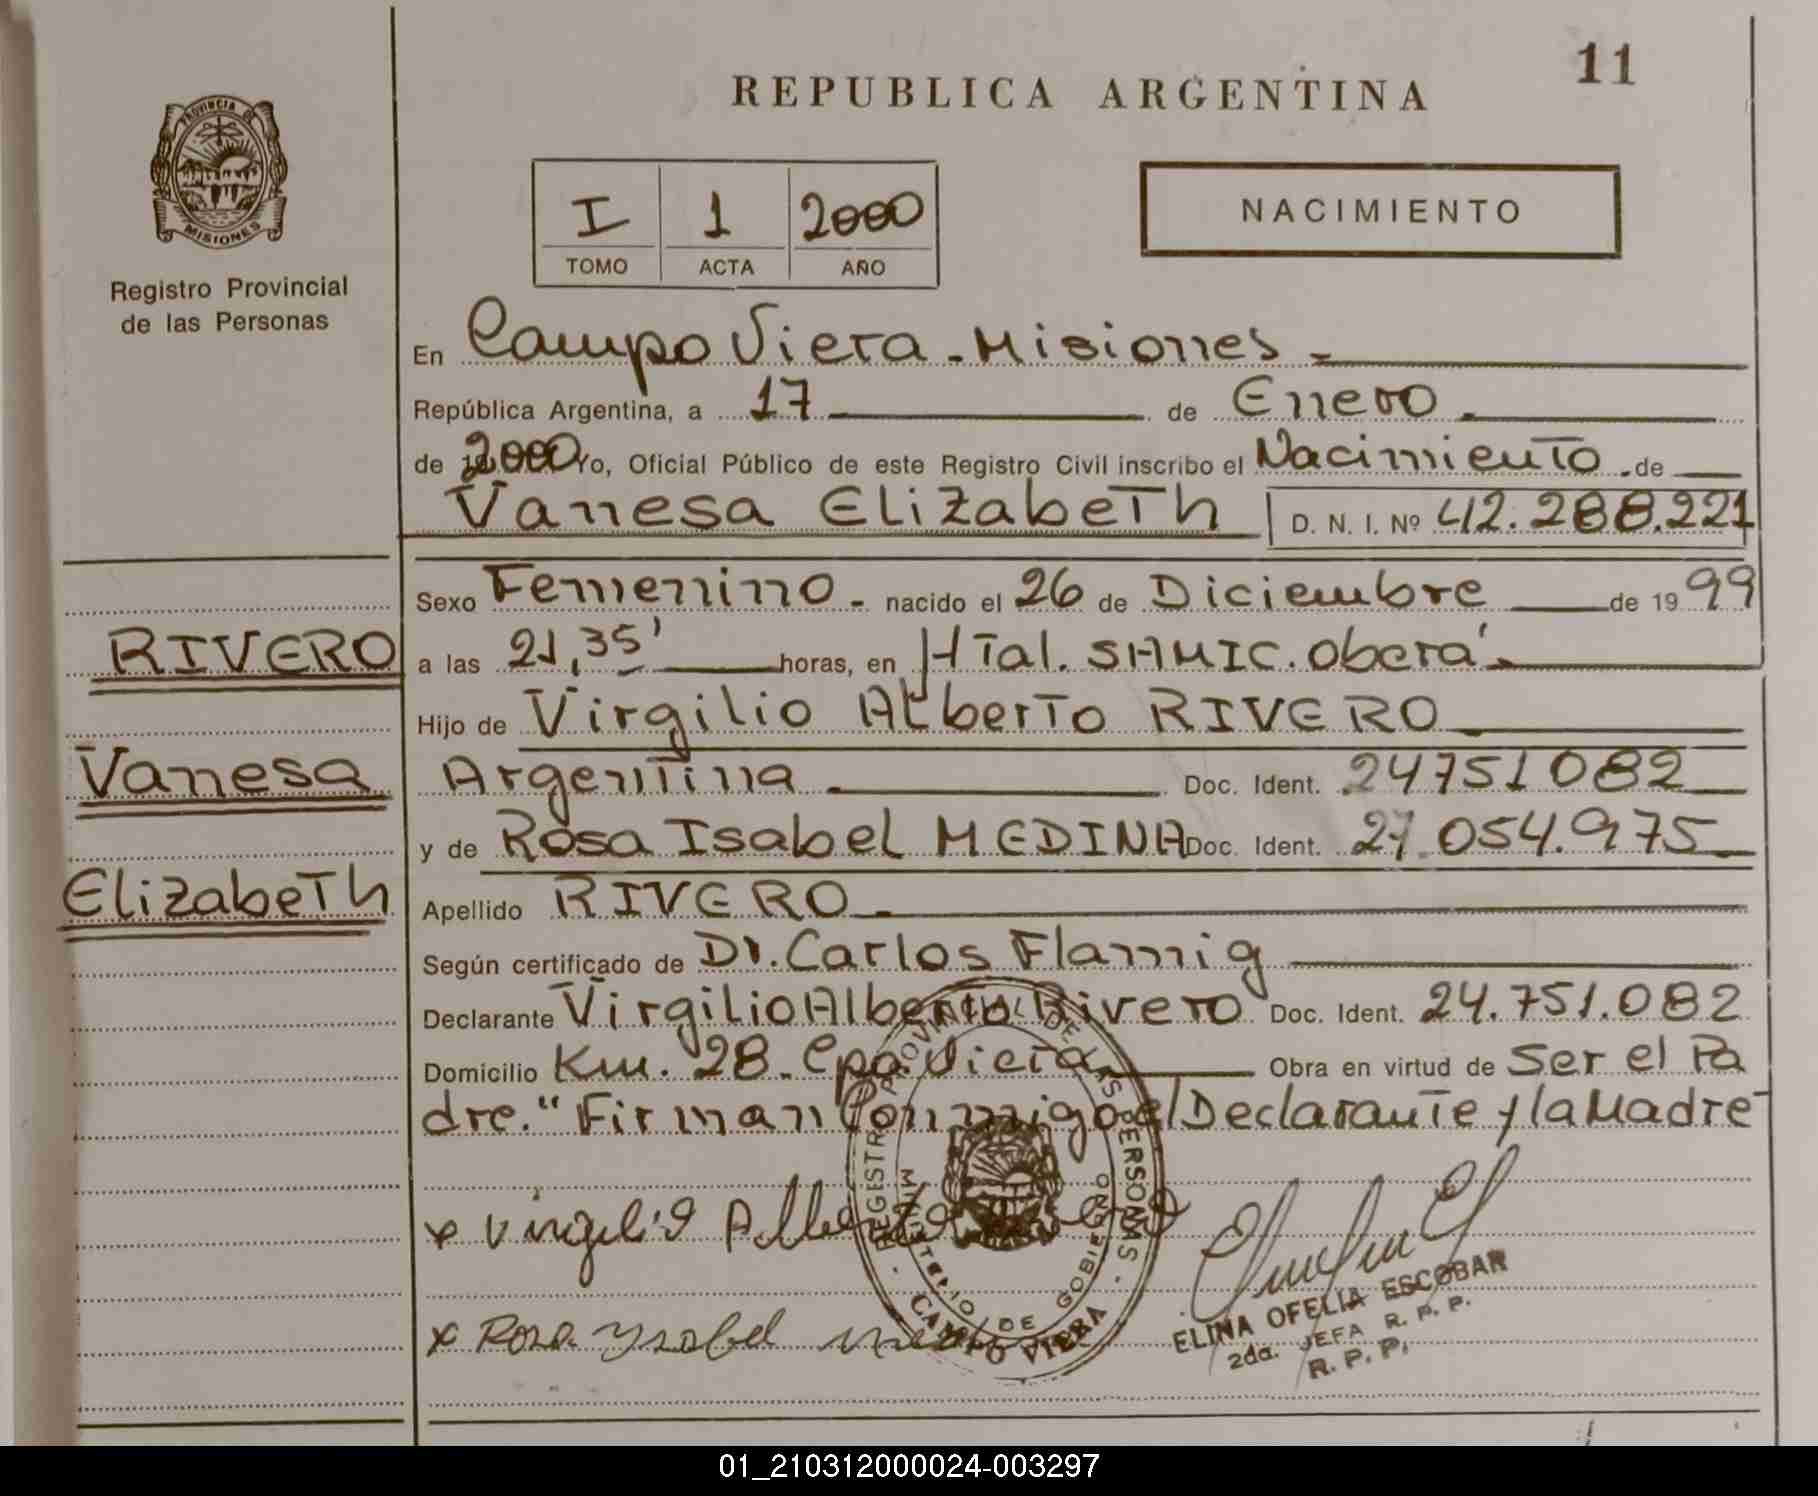 11
REPUBLICA ARGENTINA
PROVINCIA DE
MISIONES
Registro Provincial
de las Personas
I 1 2000
TOMO ACTA AÑO
NACIMIENTO
En Campo Viera - Misiones -
República Argentina, a 17 de Enero
de 2000 Yo, Oficial Público de este Registro Civil inscribo el Nacimiento de
Vanesa Elizabeth D. N. I. Nº 42.288.221
Sexo Femenino - nacido el 26 de Diciembre de 1999
RIVERO
a las 21,35' horas, en HTal. SAMIC. Oberá.
Hijo de Virgilio Alberto RIVERO
Vanesa
Argentina Doc. Ident. 24751082
y de Rosa Isabel MEDINA Doc. Ident. 27.054.975
Elizabeth
Apellido RIVERO
Según certificado de Dr. Carlos Flamig
Declarante Virgilio Alberto Rivero Doc. Ident. 24.751.082
Domicilio Km. 28. Cpo. Viera Obra en virtud de Ser el Pa
dre." Firman Conmigo el Declarante y la Madre
REGISTRO PROVINCIAL DE LAS PERSONAS
MINISTERIO DE GOBIERNO
CAMPO VIERA
x Virgilio Alberto Rivero
x Rosa Ysabel
ELINA OFELIA ESCOBAR
2da. JEFA R. P. P.
R. P. P.
01_210312000024-003297